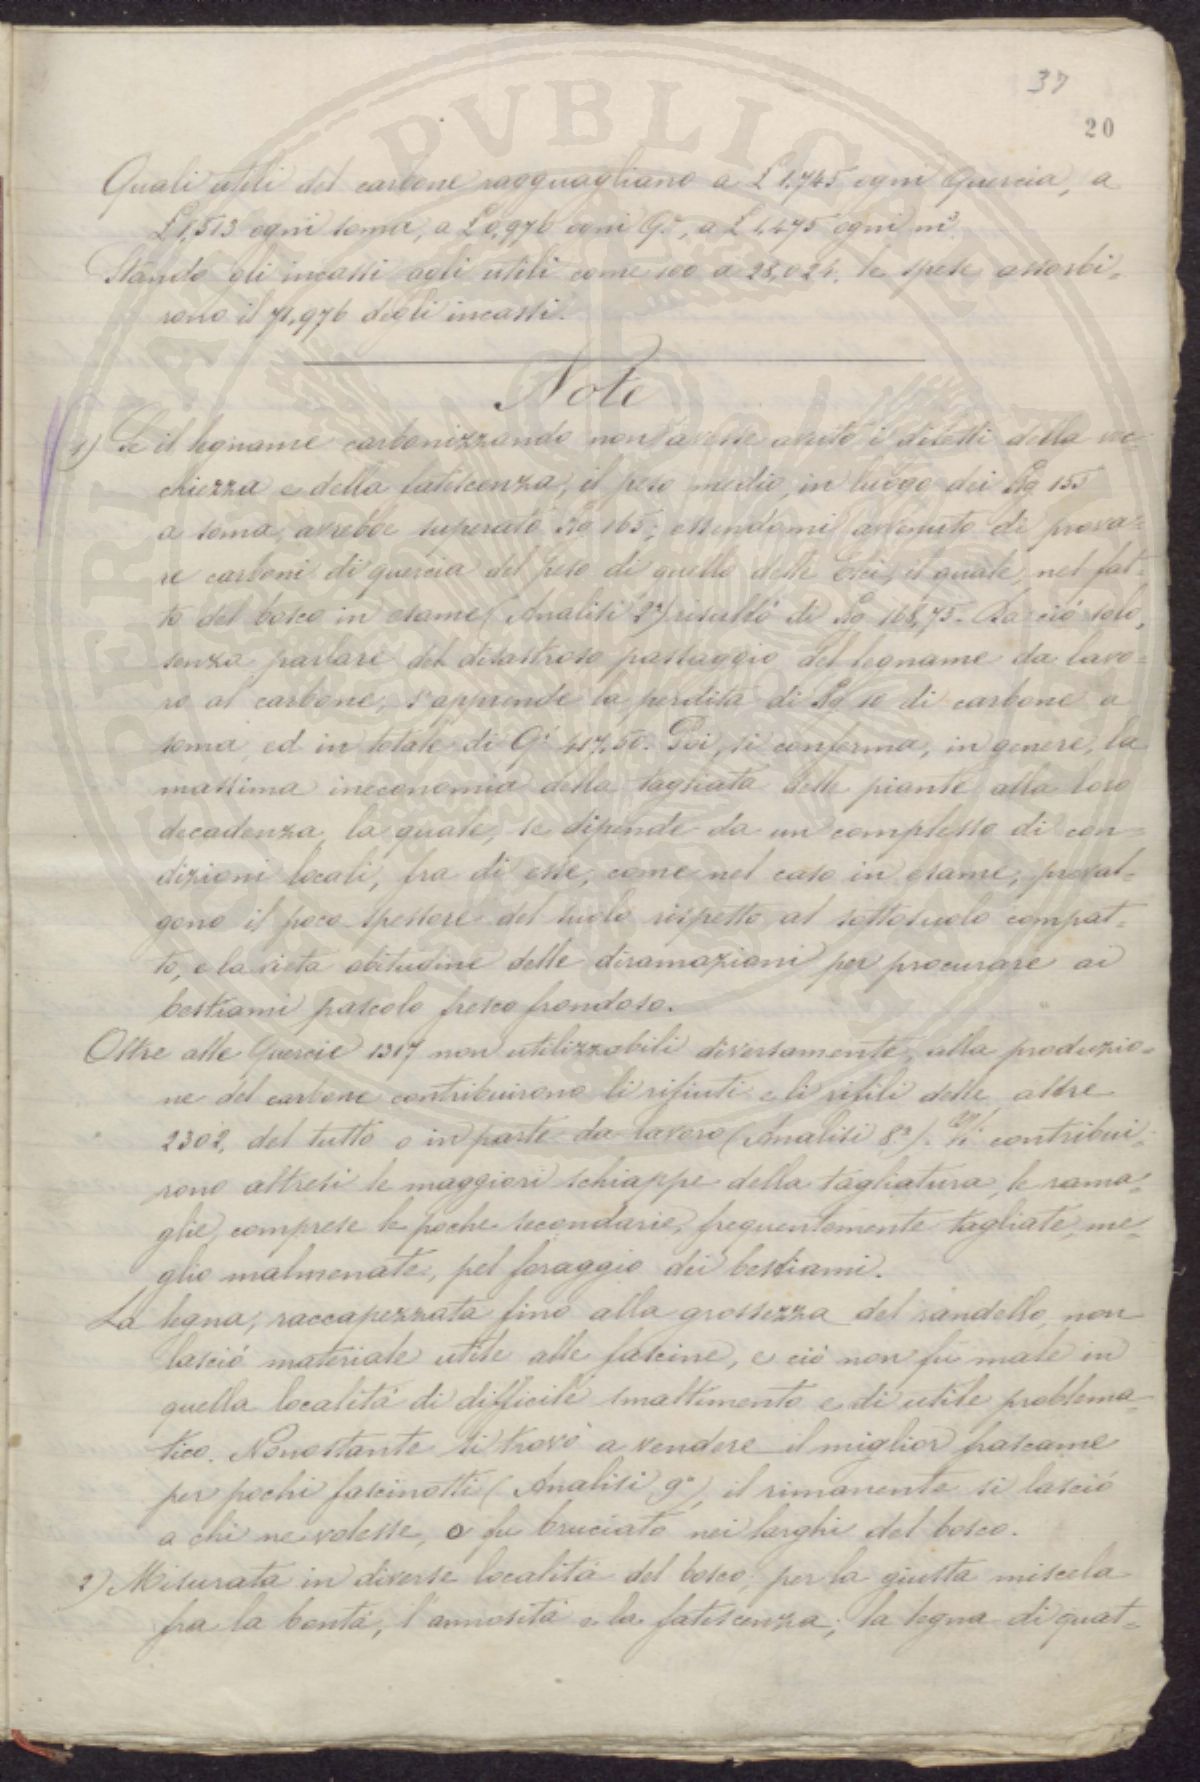 37
20
Quali utili del carbone ragguagliano a £ 1,745 ogni Quercia, a
£ 1,513 ogni soma, a £ 0,976 ogni Q.le, a £ 1,475 ogni m³.
Stando gli incassi agli utili come 100 a 28,024, le spese assorbi=
rono il 71,976 degli incassi.
Note
1) Se il legname carbonizzando non avesse avuto i difetti della vec=
chiezza e della fatiscenza, il peso medio, in luogo dei Kg 155
a soma, avrebbe superato Kg 165; essendomi avvenuto di prova=
re carboni di quercia del peso di quello delle Elci, il quale, nel fat=
to del bosco in esame (Analisi 2ª) risultò di Kg 168,75. Da ciò solo,
senza parlare del disastroso passaggio del legname da lavo=
ro al carbone, s'apprende la perdita di Kg 10 di carbone a
soma, ed in totale di Q.li 417,50. Poi, si conferma, in genere, la
massima ineconomia della tagliata delle piante alla loro
decadenza, la quale, se dipende da un complesso di con=
dizioni locali, fra di esse, come nel caso in esame, preval=
gono il poco spessore del suolo rispetto al sottosuolo compat=
to, e la vieta abitudine delle diramazioni per procurare ai
bestiami pascolo fresco frondoso.
Oltre alle Quercie 1317 non utilizzabili diversamente, alla produzio=
ne del carbone contribuirono li rifiuti e li rifili delle altre
2302, del tutto o in parte da lavoro (Analisi 8ª). Vi contribui=
rono altresì le maggiori schiappe della tagliatura, le rama=
glie, comprese le poche secondarie, frequentemente tagliate, me=
glio malmenate, pel foraggio dei bestiami.
La legna, raccapezzata fino alla grossezza del randello, non
lasciò materiale utile alle fascine, e ciò non fu male in
quella località di difficile smaltimento e di utile problema=
tico. Nonostante si trovò a vendere il miglior frascame
per pochi fascinotti (Analisi 9ª), il rimanente si lasciò
a chi ne volesse, o fu bruciato nei larghi del bosco.
2) Misurata in diverse località del bosco, per la giusta miscela
fra la bontà, l'annosità e la fatiscenza, la legna di quat=